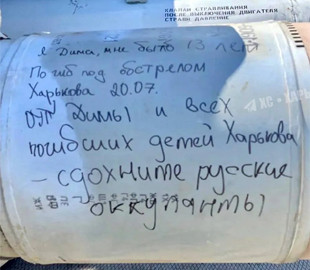 КЛАПАН СТРАВЛИВАНИЯ
ПОСЛЕ ВЫКЛЮЧЕНИЯ ДВИГАТЕЛЯ
СТРАВИ ДАВЛЕНИЕ
Я Дима, мне было 13 лет
Погиб под обстрелом
Харькова 20.07.
ОТ Димы и всех
погибших детей Харькова
- сдохните русские
оккупанты